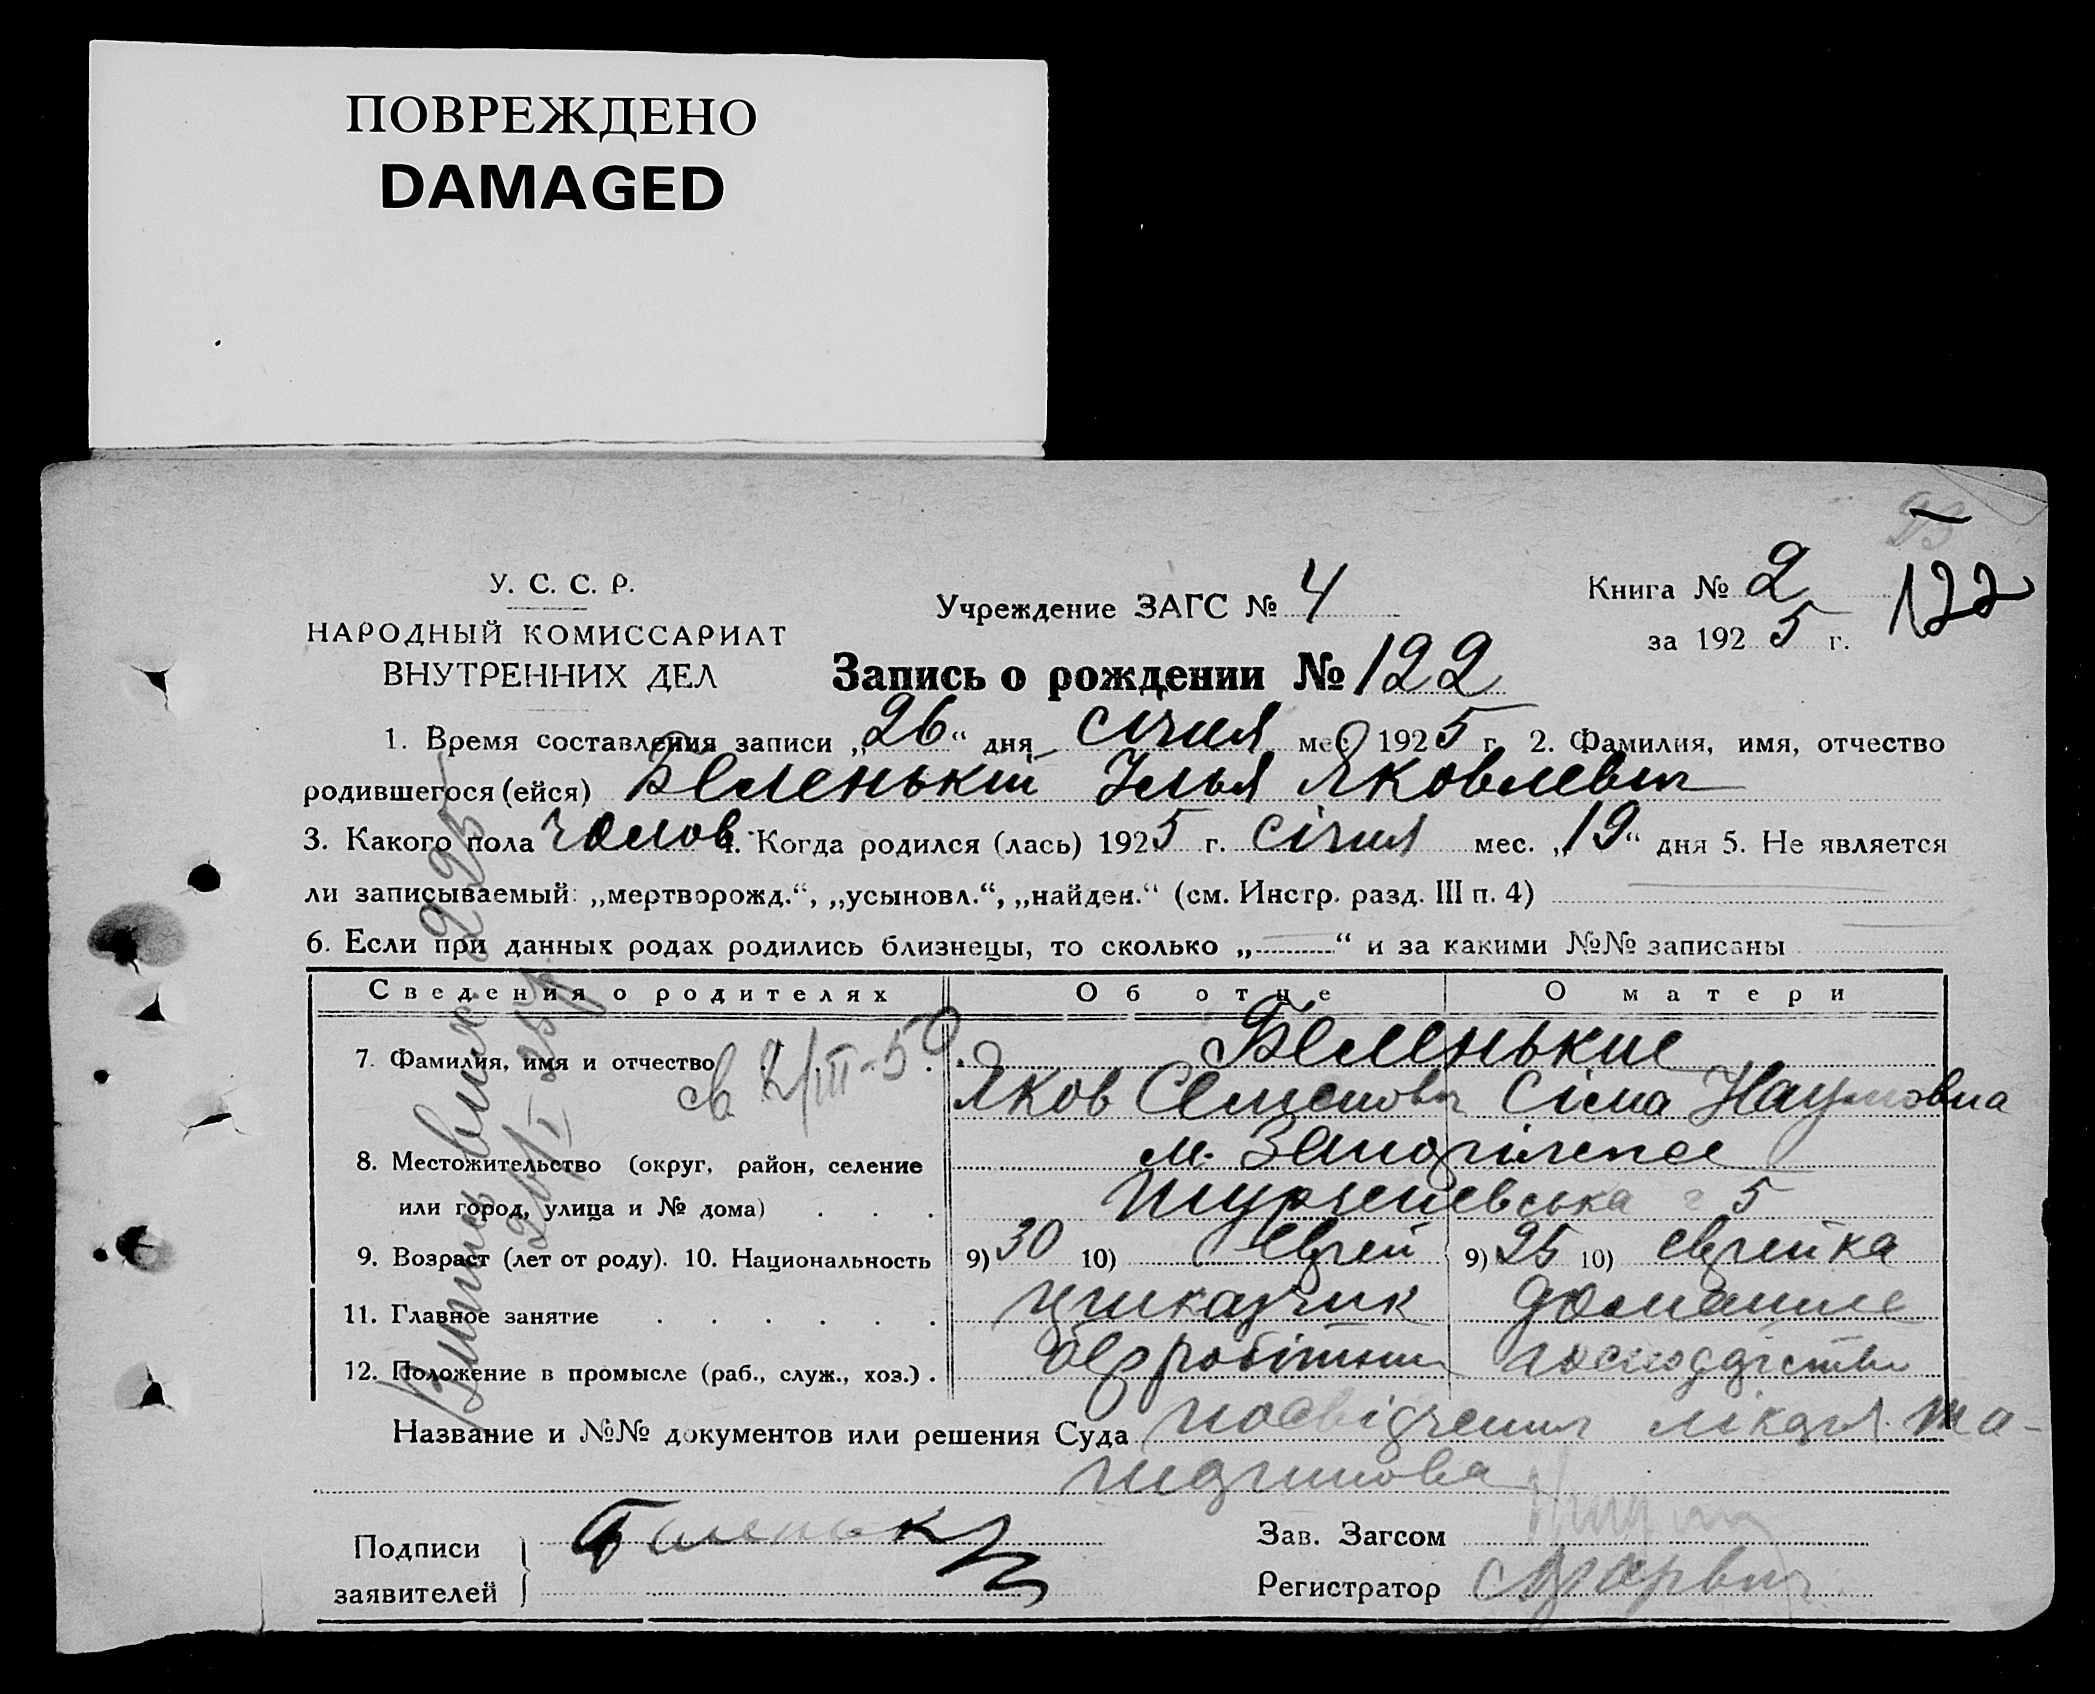 ПОВРЕЖДЕНО
DAMAGED
У. С. С. Р.
НАРОДНЫЙ КОМИССАРИАТ
ВНУТРЕННИХ ДЕЛ
Учреждение ЗАГС № 4
Книга № 2
за 1925 г.
122
Запись о рождении № 122
1. Время составления записи „26“ дня січня мес 1925 г. 2. Фамилия, имя, отчество
родившегося (ейся) Беленький Илья Яковлевич
3. Какого пола чолов. 4. Когда родился (лась) 1925 г. січня мес. „19“ дня 5. Не является
ли записываемый: „мертворожд.“, „усыновл.“, „найден.“ (см. Инстр. разд. III п. 4)
6. Если при данных родах родились близнецы, то сколько „ “ и за какими №№ записаны
Сведения о родителях Об отце О матери
7. Фамилия, имя и отчество Беленькие
св 2/III-50
Яков Семенович Сіма Наумовна
8. Местожительство (округ, район, селение м.
или город, улица и № дома) 5
9. Возраст (лет от роду). 10. Национальность 9) 30 10) єврей 9) 25 10) єврейка
11. Главное занятие приказчик домашнє
12. Положение в промысле (раб., служ., хоз.) безробітний господарство
Название и №№ документов или решения Суда посвідчення лікаря
Подписи
заявителей
Зав. Загсом
Регистратор